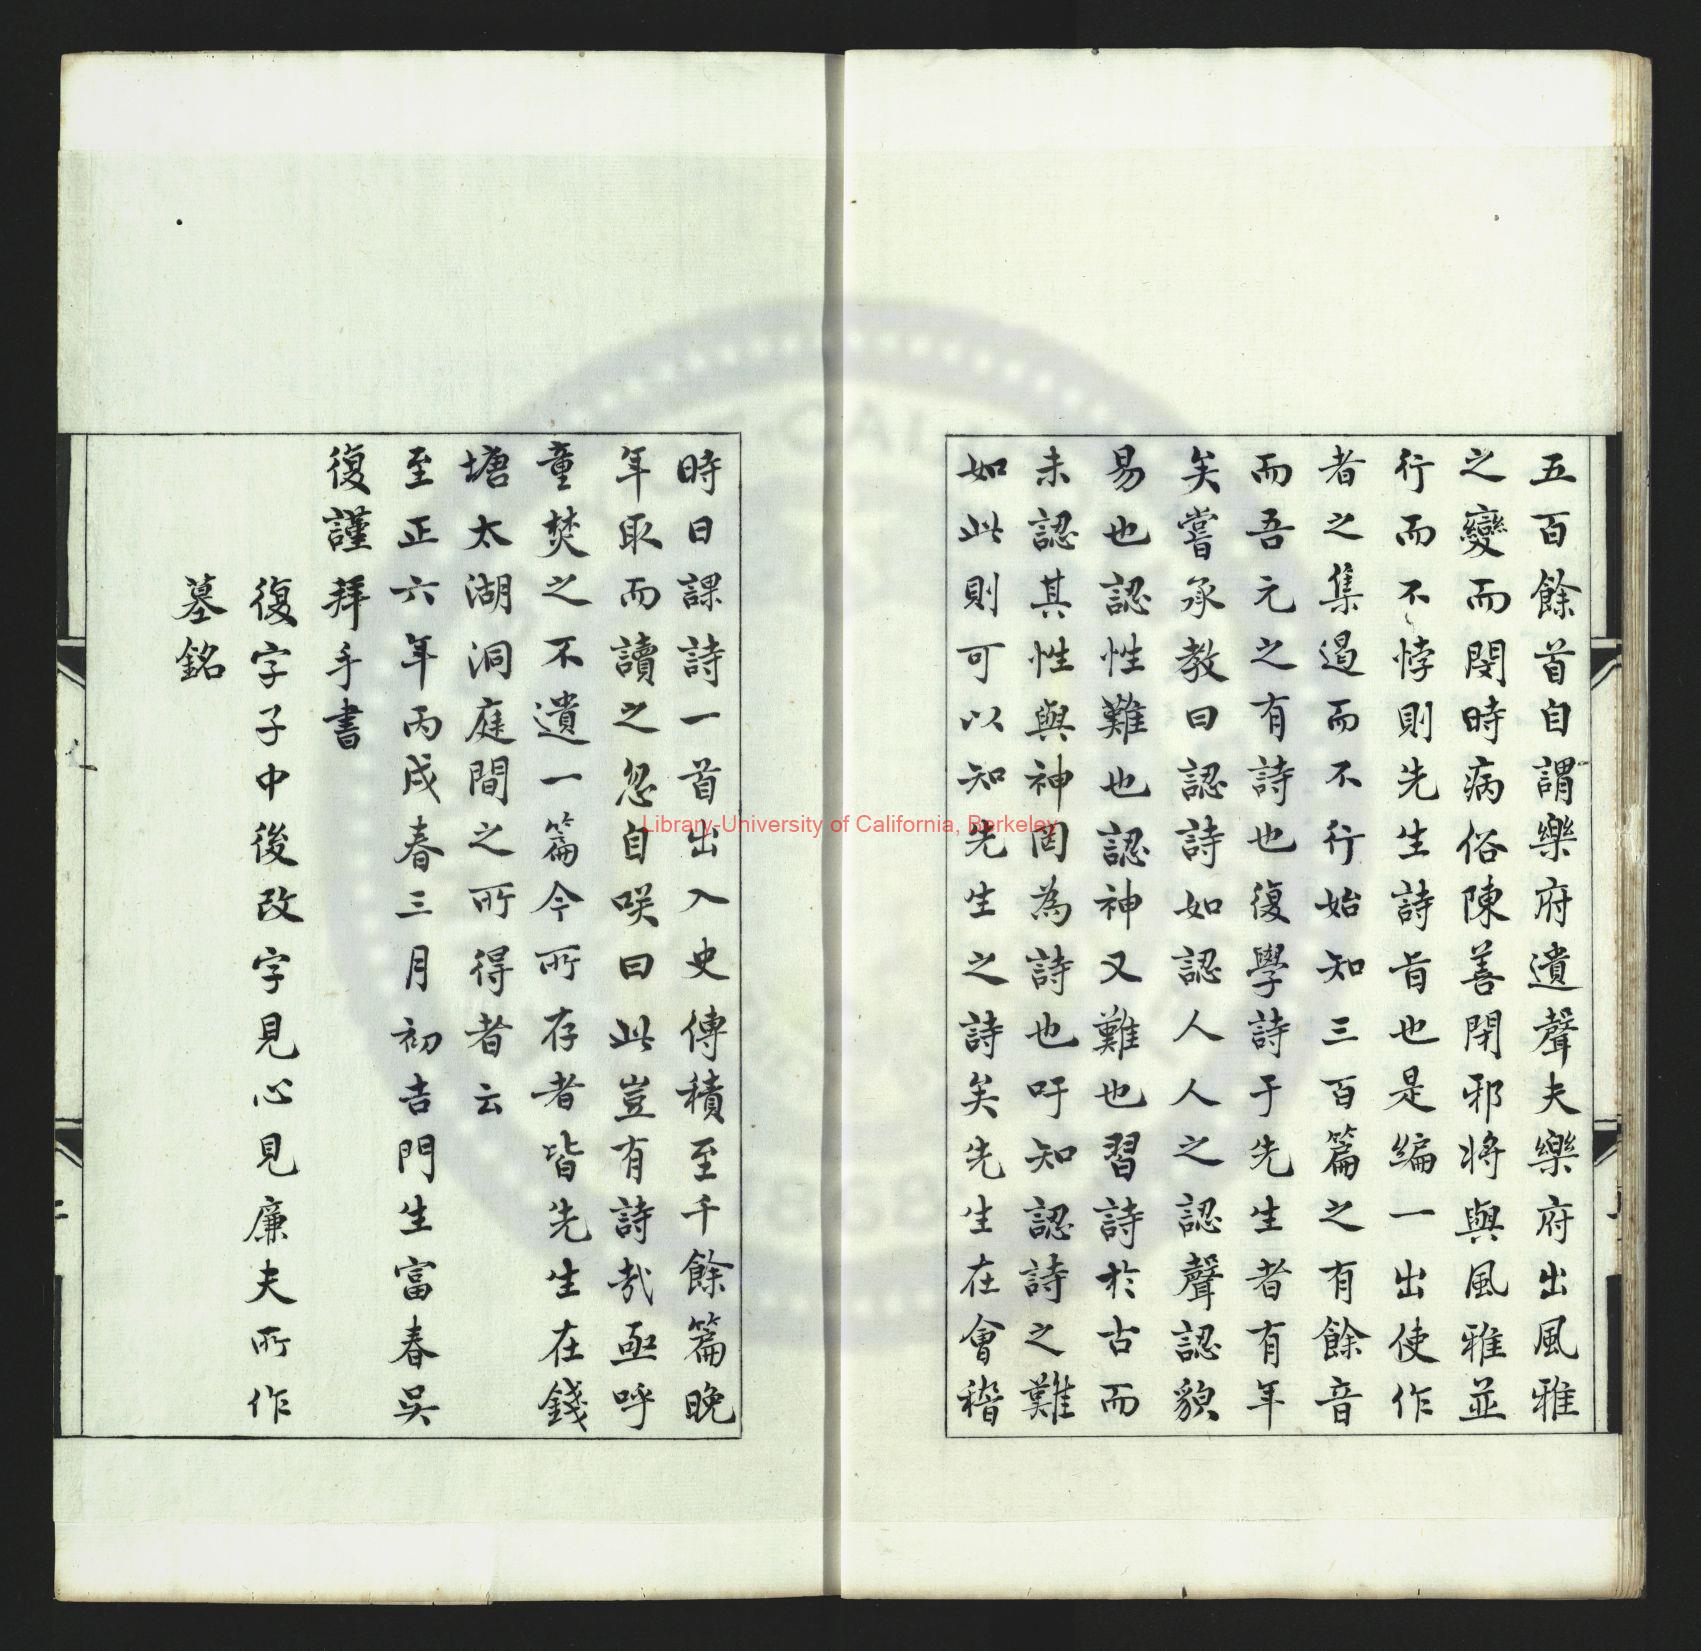 五百餘首自謂樂府遺聲夫樂府出風雅
之變而閔時病俗陳善閉邪將與風雅並
行而不悖則先生詩旨也是編一出使作
者之集遏而不行始知三百篇之有餘音
而吾元之有詩也復學詩于先生者有年
矣嘗承教曰認詩如認人人之認聲認貌
易也認性難也認神又難也習詩於古而
未認其性與神罔為詩也吁知認詩之難
如此則可以知先生之詩矣先生在會稽
時日課詩一首出入史傳積至千餘篇晚
年取而讀之忽自咲曰此豈有詩哉亟呼
童焚之不遺一篇今所存者皆先生在錢
塘太湖洞庭間之所得者云
至正六年丙戌春三月初吉門生富春吳
復謹拜手書
復字子中後改字見心見廉夫所作
墓銘
Library-University of California, Berkeley